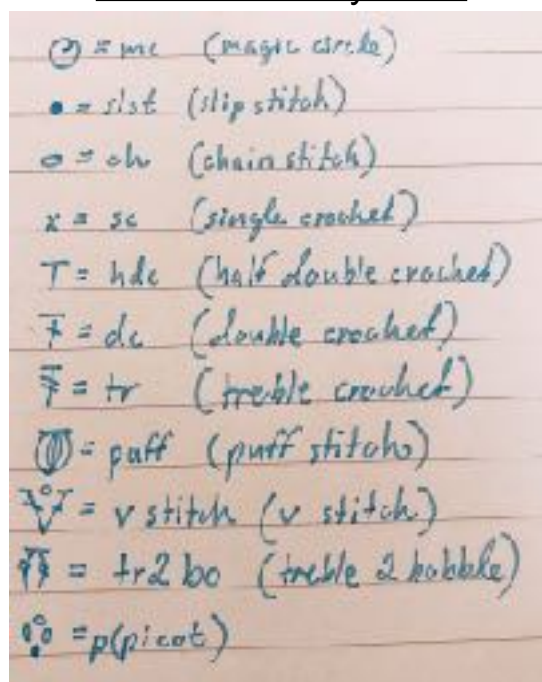 = mc (magic circle)
• = slst (slip stitch)
o = ch (chain stitch)
x = sc (single crochet)
T = hdc (half double crochet)
= dc (double crochet)
= tr (treble crochet)
= puff (puff stitch)
= v stitch (v stitch)
= tr2bo (treble 2 bobble)
= p(picot)